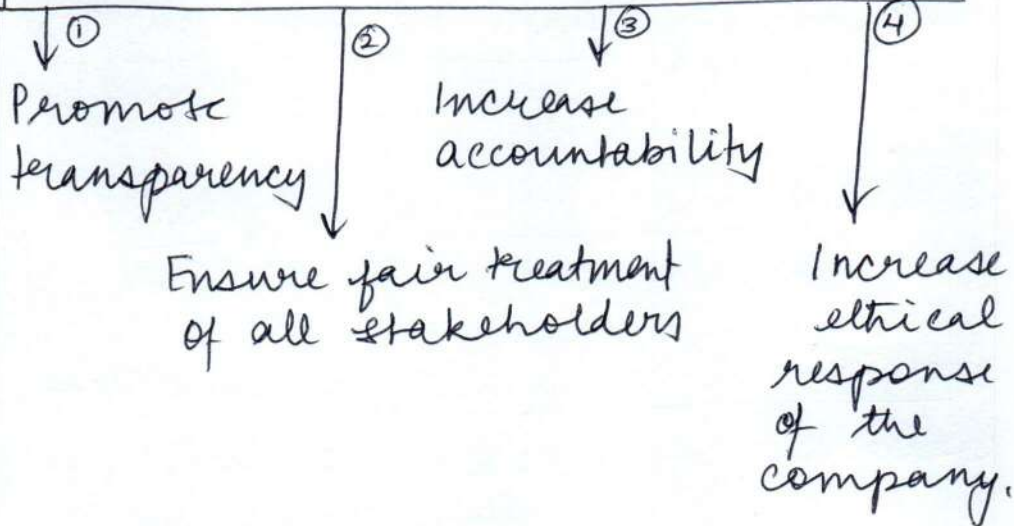 ①
Promote
transparency
②
Ensure fair treatment
of all stakeholders
③
Increase
accountability
④
Increase
ethical
response
of the
company.